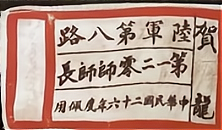 陸軍第八路
第一二零師師長
中華民國二十六年度佩用
賀龍